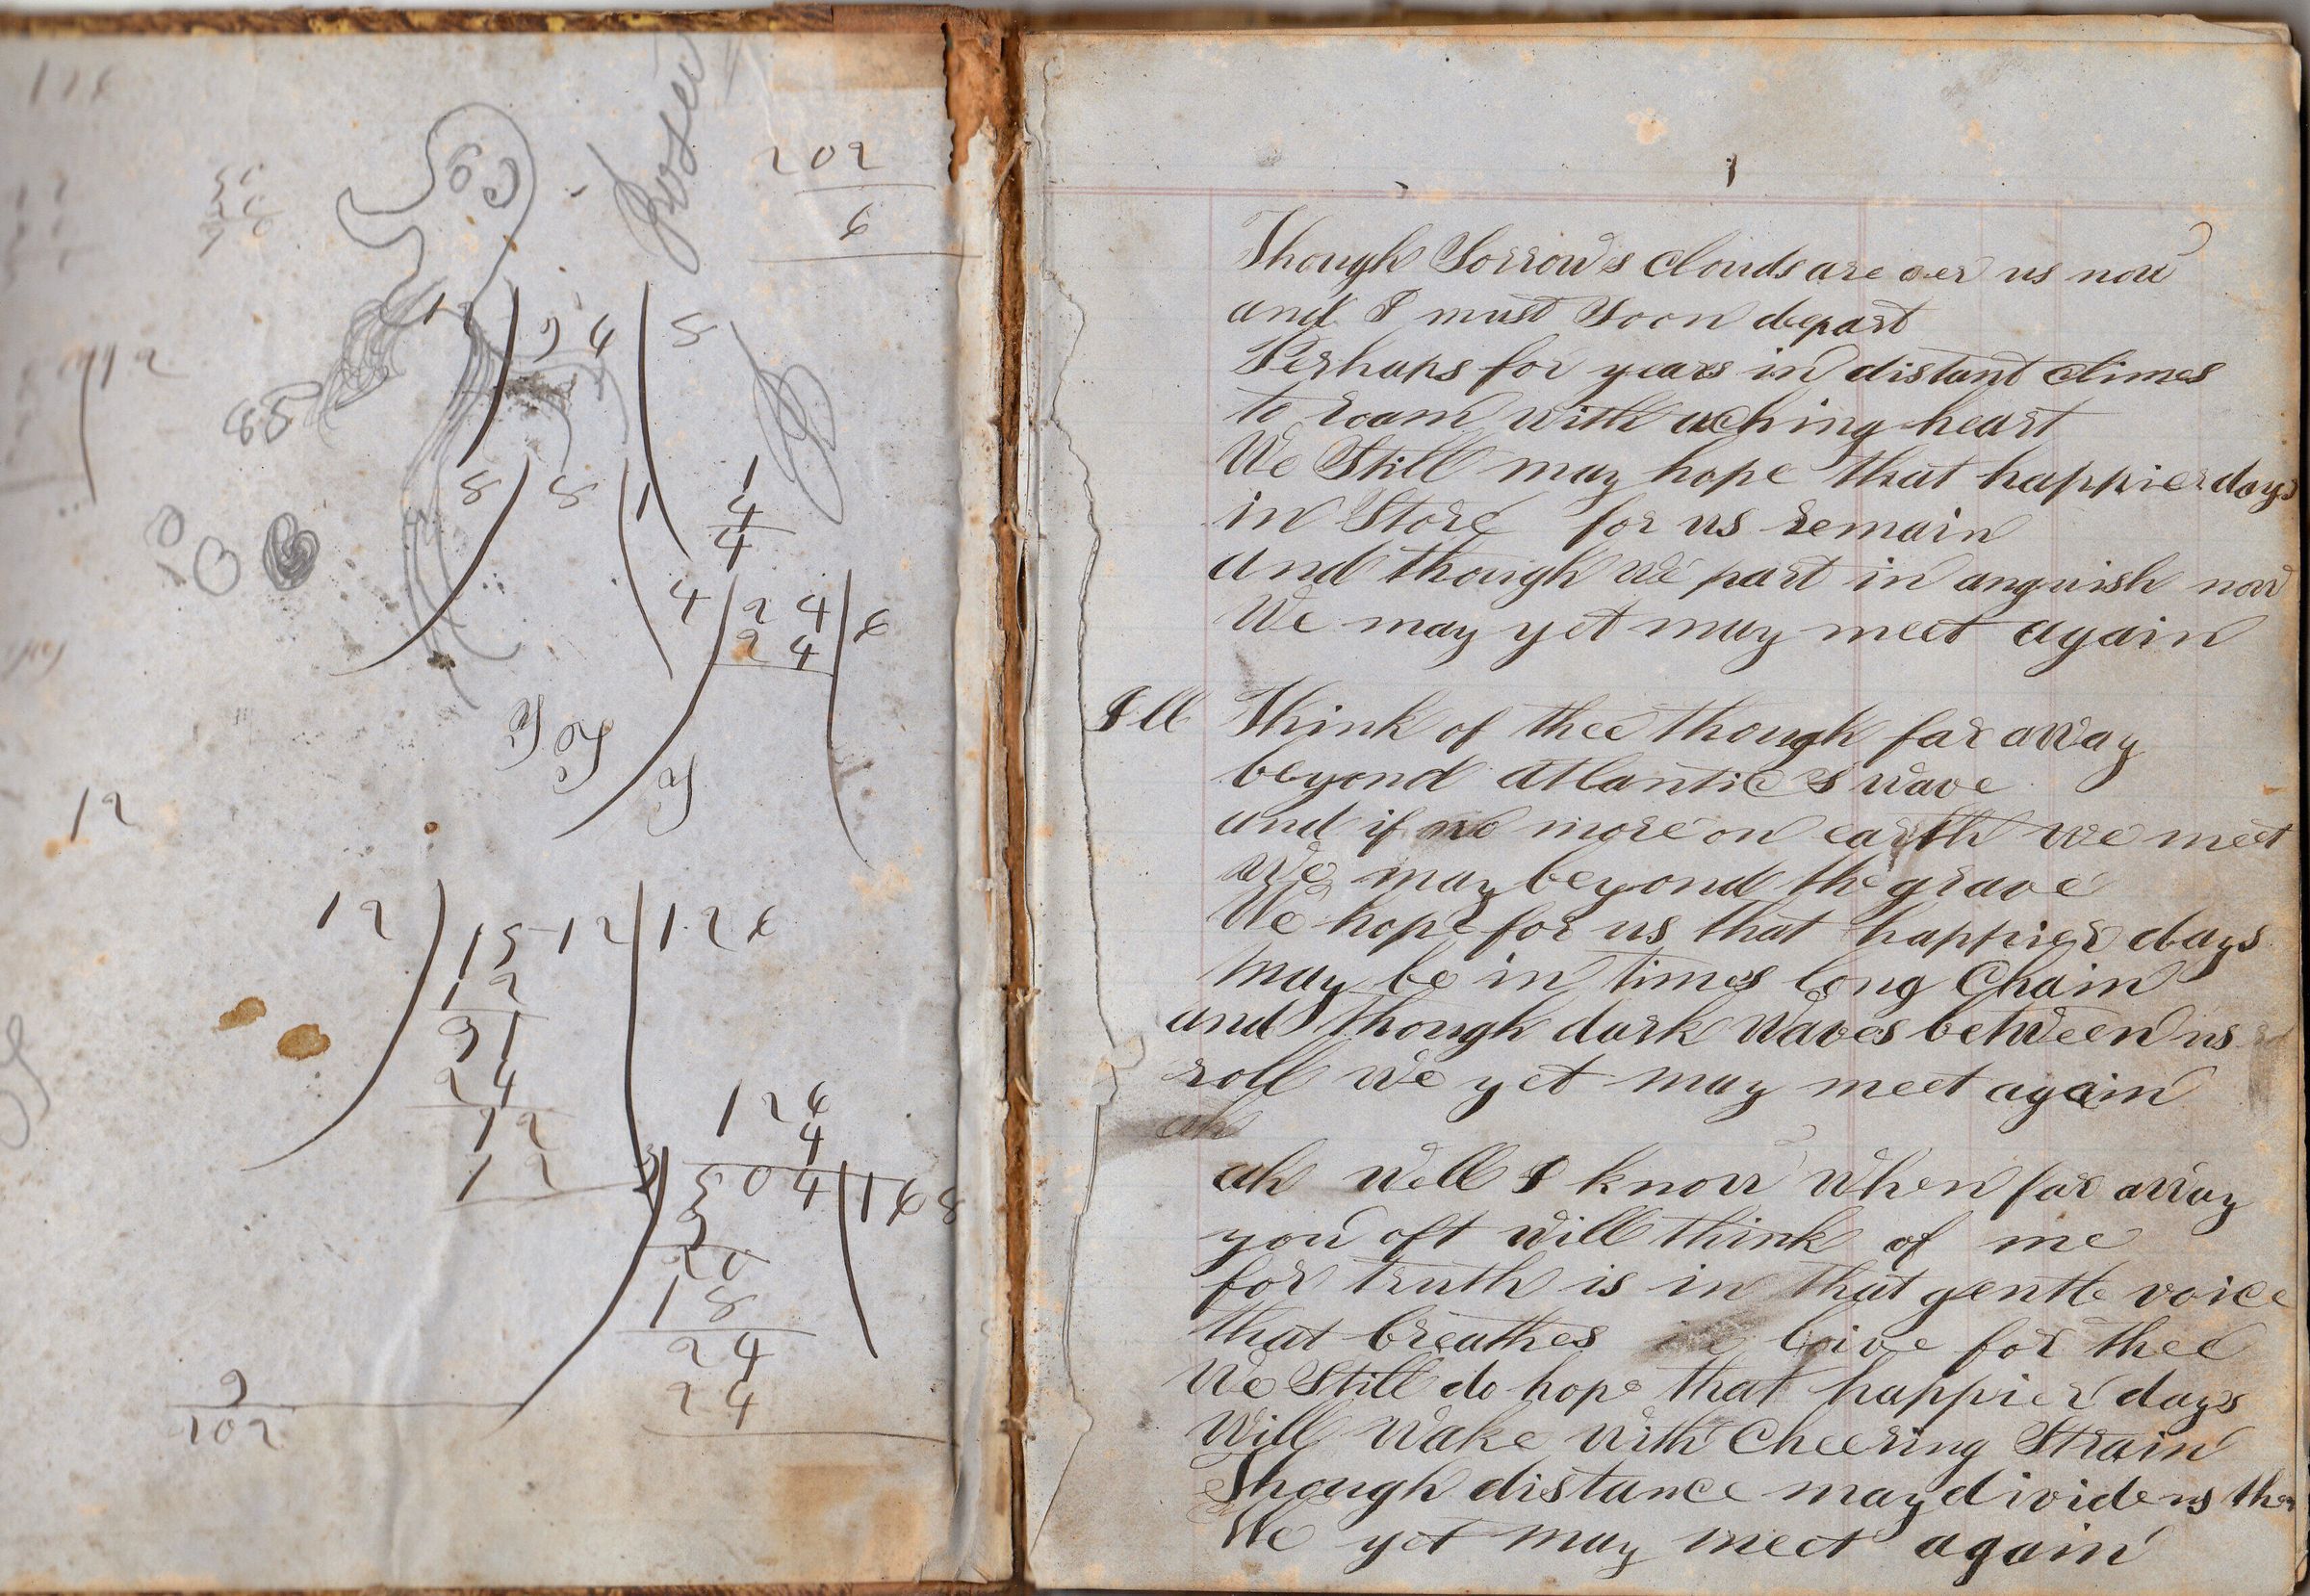 202
6
12 ) 96 ( 8
85
8 ) 8 ( 1
1
4
4
4 ) 24 ( 6
24
12
12 ) 1512 ( 126
12
31
24
72
126
4
3 ) 504 ( 168
3
20
18
24
24
9
102
1
Though Sorrows clouds are oer us now
and I must Soon depart
Perhaps for years in distant climes
to roam with aching heart
We Still may hope that happier days
in Store for us remain
and though we part in anguish now
We may yet may meet again
Ill Think of thee though far away
beyond atlantic s wave
and if no more on earth we meet
We may beyond the grave
We hope for us that happier days
may be in times long Chain
and though dark waves between us
roll we yet may meet again
ah
ah well I know when far away
you oft will think of me
for truth is in that gentle voice
that breathes live for thee
We Still do hope that happier days
Will Wake with Cheering Strain
Though distance may divide us then
We yet may meet again